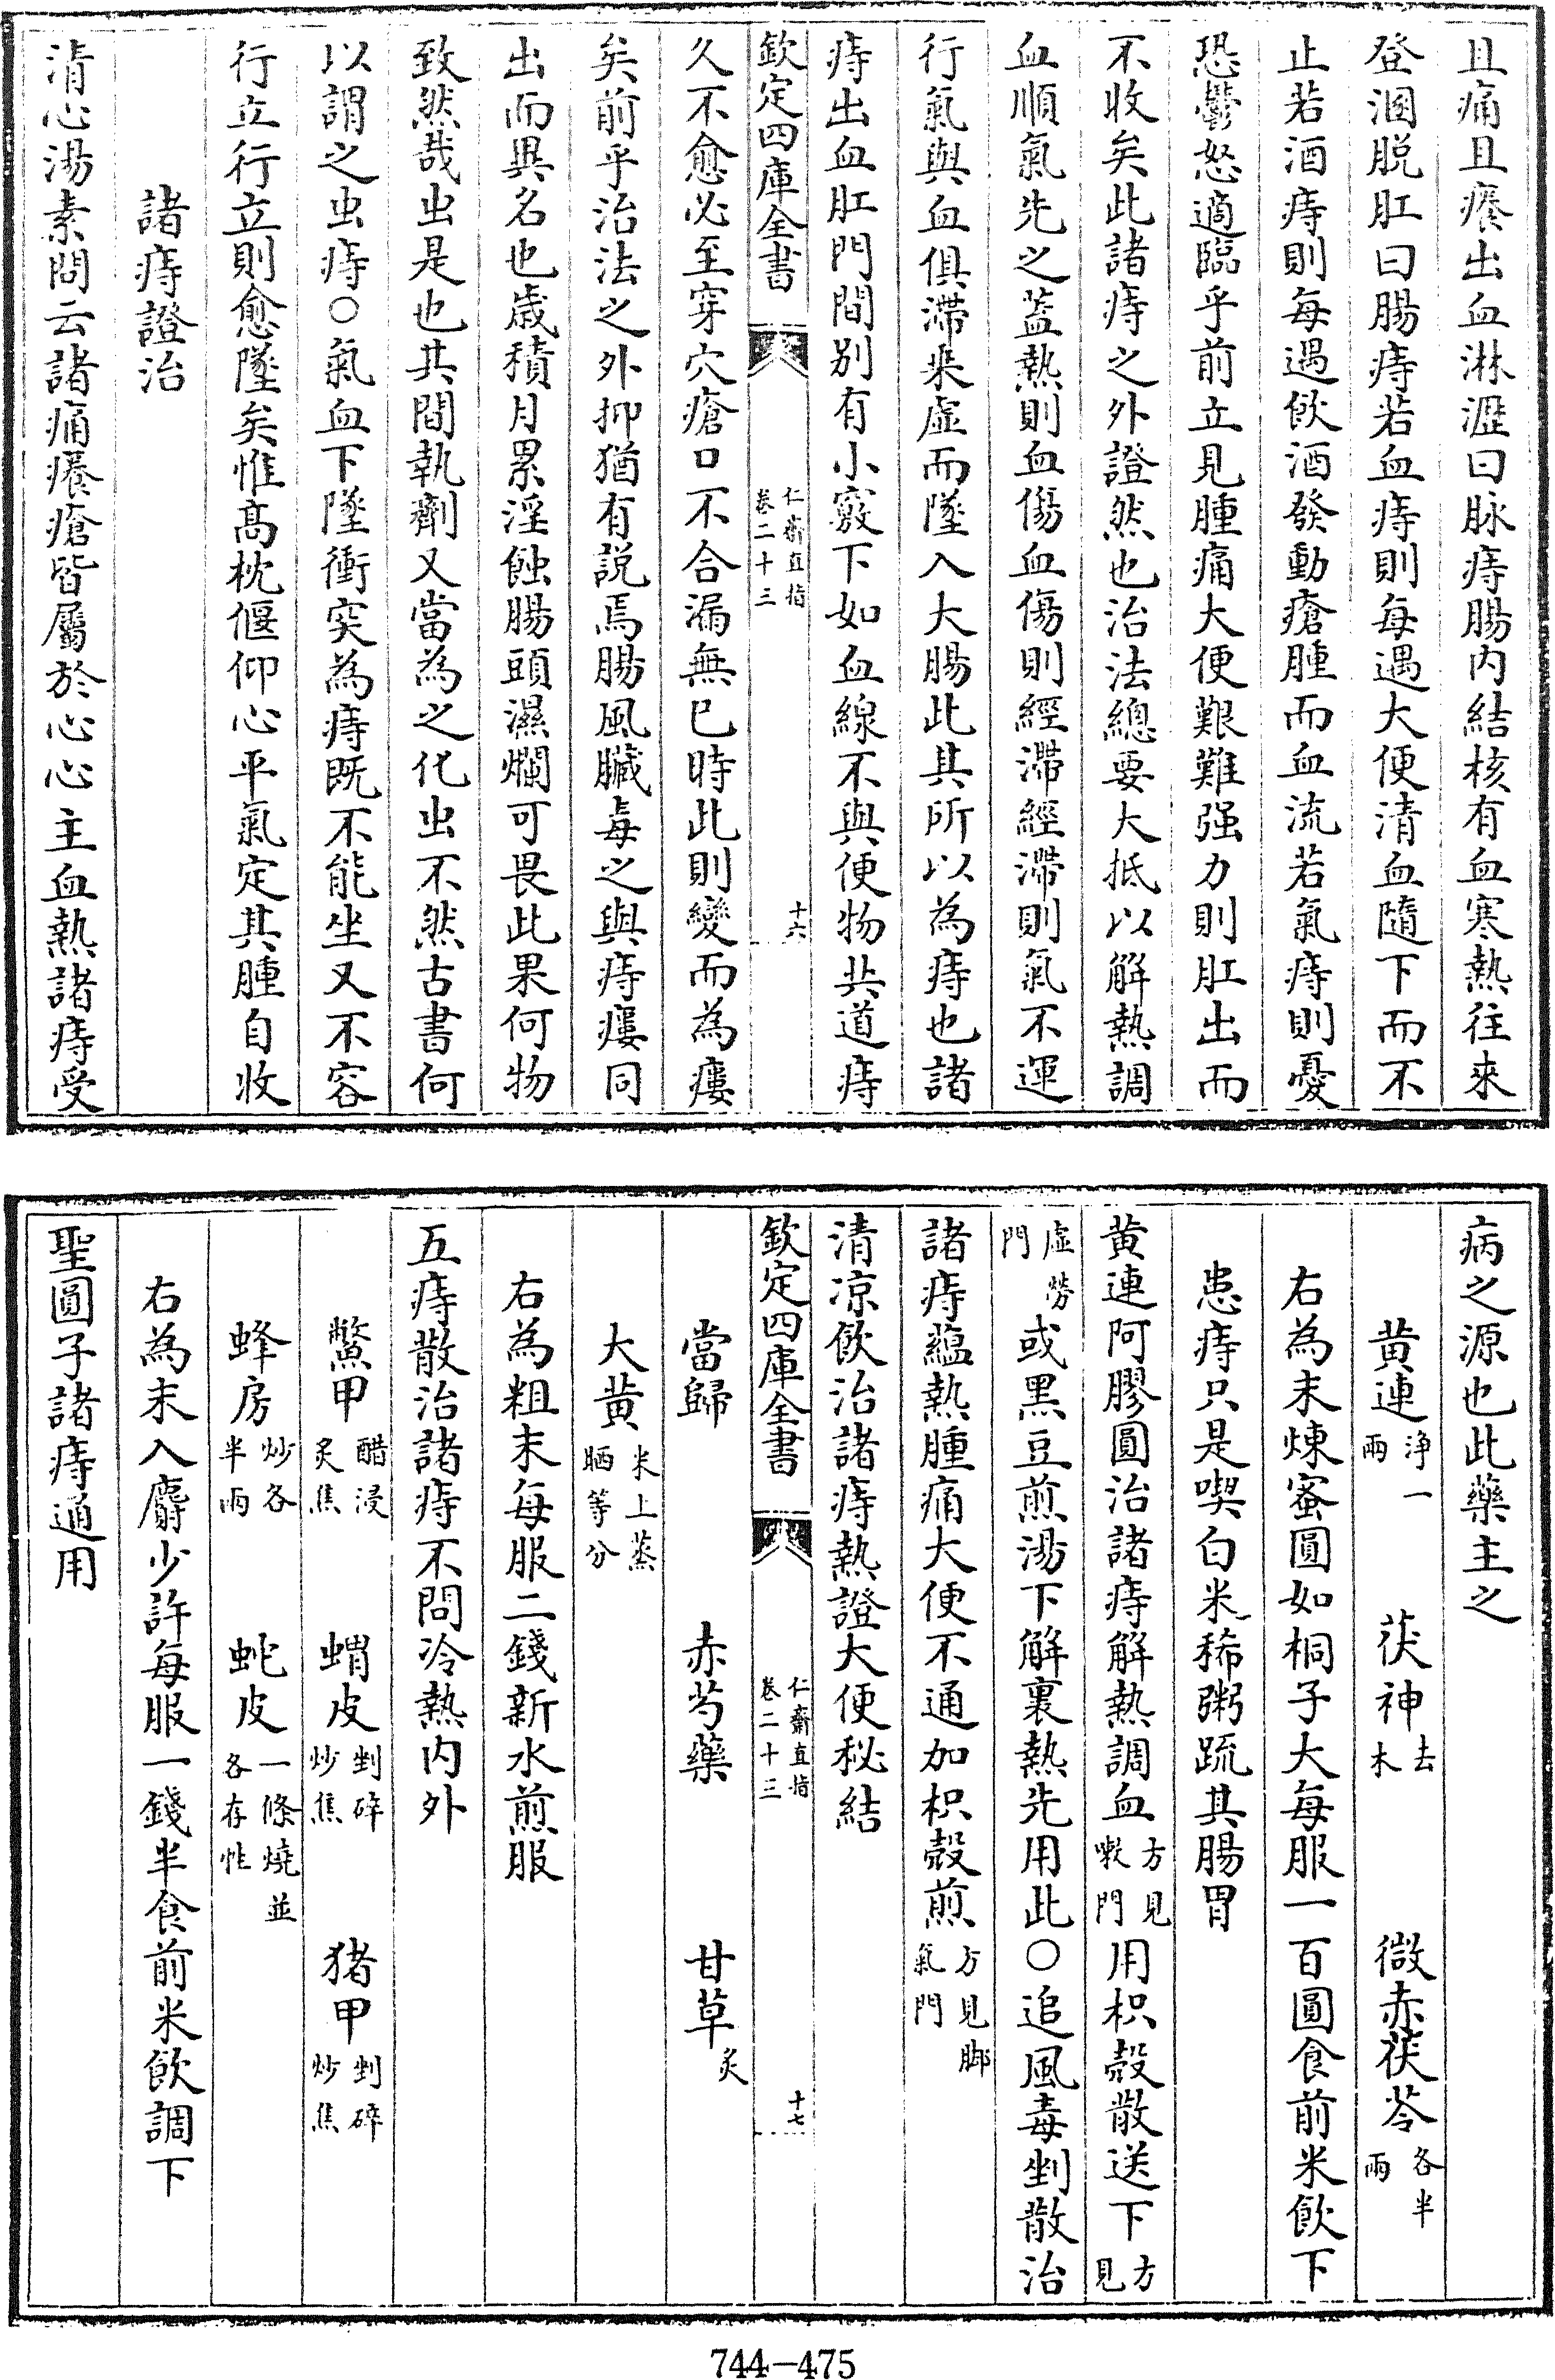 且痛且癢出血淋瀝曰脉痔腸内結核有血寒熱往來
登溷脱肛曰腸痔若血痔則每遇大便清血隨下而不
止若酒痔則每遇飲酒發動瘡腫而血流若氣痔則憂
恐鬱怒適臨乎前立見腫痛大便艱難强力則肛出而
不收矣此諸痔之外證然也治法總要大抵以解熱調
血順氣先之蓋熱則血傷血傷則經滯經滯則氣不運
行氣與血俱滯乘虚而墜入大腸此其所以為痔也諸
痔出血肛門間别有小竅下如血線不與便物共道痔
欽定四庫全書
仁齋直指
卷二十三
十六
久不愈必至穿穴瘡口不合漏無已時此則變而為瘻
矣前乎治法之外抑猶有説焉腸風臟毒之與痔瘻同
出而異名也歳積月累淫蝕腸頭濕爛可畏此果何物
致然哉虫是也其間執劑又當為之化虫不然古書何
以謂之虫痔○氣血下墜衝突為痔既不能坐又不容
行立行立則愈墜矣惟髙枕偃仰心平氣定其腫自收
諸痔證治
清心湯素問云諸痛癢瘡皆屬於心心主血熱諸痔受
病之源也此藥主之
黄連浄一兩 茯神去木 微赤茯苓各半兩
右為末煉蜜圓如桐子大每服一百圓食前米飲下
患痔只是喫白米稀粥疏其腸胃
黄連阿膠圓治諸痔解熱調血方見嗽門用枳殻散送下方見
虚勞門或黑豆煎湯下解裏熱先用此○追風毒剉散治
諸痔蘊熱腫痛大便不通加枳殻煎方見脚氣門
清凉飲治諸痔熱證大便秘結
欽定四庫全書
仁齋直指
卷二十三
十七
當歸 赤芍藥 甘草炙
大黄米上蒸晒等分
右為粗末每服二錢新水煎服
五痔散治諸痔不問冷熱内外
鱉甲醋浸炙焦 蝟皮剉碎炒焦 猪甲剉碎炒焦
蜂房炒各半兩 蛇皮一條燒並各存性
右為末入麝少許每服一錢半食前米飲調下
聖圓子諸痔通用
744-475